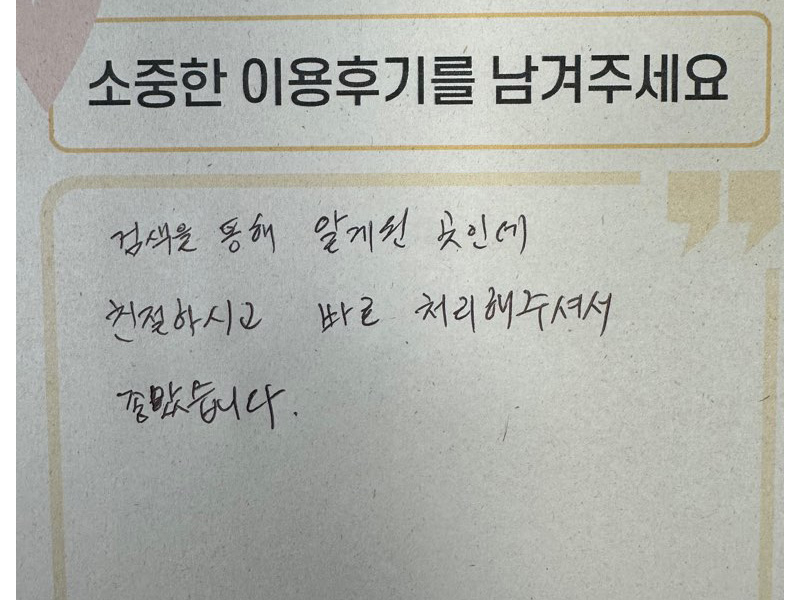 소중한 이용후기를 남겨주세요
검색을 통해 알게된 곳인데
친절하시고 바로 처리해주셔서
좋았습니다.